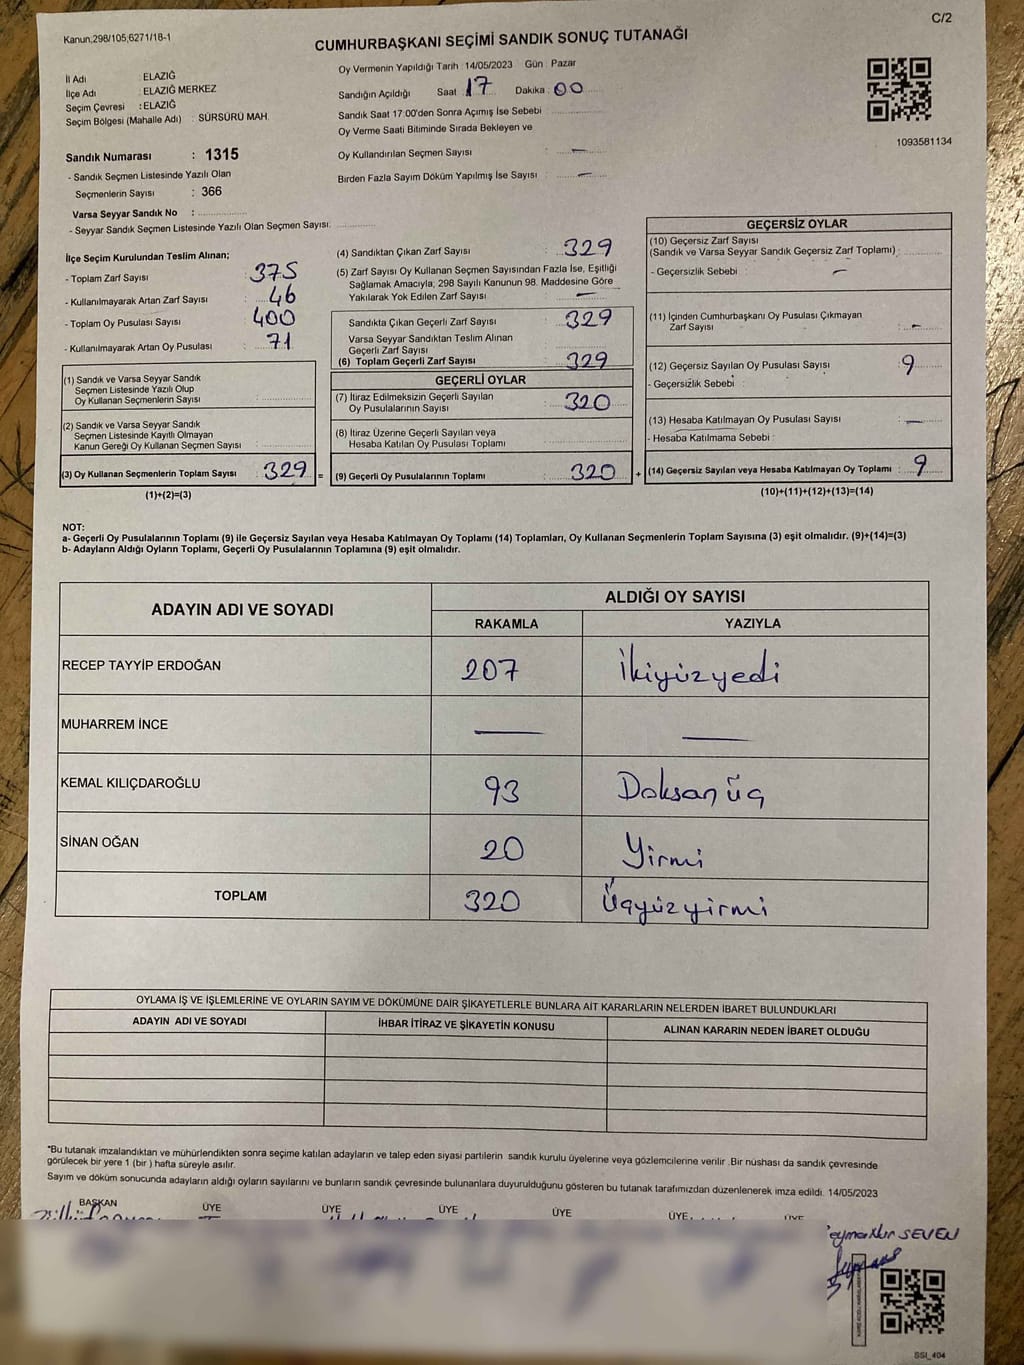 C/2
Kanun;298/105,6271/18-1
CUMHURBAŞKANI SEÇİMİ SANDIK SONUÇ TUTANAĞI
İl Adı ELAZIĞ
İlçe Adı ELAZIĞ MERKEZ
Seçim Çevresi : ELAZIĞ
Seçim Bölgesi (Mahalle Adı) : SÜRSÜRÜ MAH.
Sandık Numarası : 1315
- Sandık Seçmen Listesinde Yazılı Olan
Seçmenlerin Sayısı : 366
Varsa Seyyar Sandık No :
- Seyyar Sandık Seçmen Listesinde Yazılı Olan Seçmen Sayısı:
Oy Vermenin Yapıldığı Tarih : 14/05/2023 Gün : Pazar
Sandığın Açıldığı Saat : 17 Dakika : 00
Sandık Saat 17:00'den Sonra Açımış İse Sebebi :
Oy Verme Saati Bitiminde Sırada Bekleyen ve
Oy Kullandırılan Seçmen Sayısı : —
Birden Fazla Sayım Döküm Yapılmış İse Sayısı : —
1093581134
İlçe Seçim Kurulundan Teslim Alınan;
- Toplam Zarf Sayısı : 375
- Kullanılmayarak Artan Zarf Sayısı : 46
- Toplam Oy Pusulası Sayısı : 400
- Kullanılmayarak Artan Oy Pusulası : 71
(1) Sandık ve Varsa Seyyar Sandık
Seçmen Listesinde Yazılı Olup
Oy Kullanan Seçmenlerin Sayısı :
(2) Sandık ve Varsa Seyyar Sandık
Seçmen Listesinde Kayıtlı Olmayan
Kanun Gereği Oy Kullanan Seçmen Sayısı :
(3) Oy Kullanan Seçmenlerin Toplam Sayısı : 329 =
(1)+(2)=(3)
(4) Sandıktan Çıkan Zarf Sayısı : 329
(5) Zarf Sayısı Oy Kullanan Seçmen Sayısından Fazla İse, Eşitliği
Sağlamak Amacıyla, 298 Sayılı Kanunun 98. Maddesine Göre
Yakılarak Yok Edilen Zarf Sayısı : —
Sandıkta Çıkan Geçerli Zarf Sayısı : 329
Varsa Seyyar Sandıktan Teslim Alınan
Geçerli Zarf Sayısı
(6) Toplam Geçerli Zarf Sayısı : 329
GEÇERLİ OYLAR
(7) İtiraz Edilmeksizin Geçerli Sayılan
Oy Pusulalarının Sayısı : 320
(8) İtiraz Üzerine Geçerli Sayılan veya
Hesaba Katılan Oy Pusulası Toplamı :
(9) Geçerli Oy Pusulalarının Toplamı : 320 +
GEÇERSİZ OYLAR
(10) Geçersiz Zarf Sayısı
(Sandık ve Varsa Seyyar Sandık Geçersiz Zarf Toplamı) :
- Geçersizlik Sebebi : —
(11) İçinden Cumhurbaşkanı Oy Pusulası Çıkmayan
Zarf Sayısı : —
(12) Geçersiz Sayılan Oy Pusulası Sayısı : 9
- Geçersizlik Sebebi :
(13) Hesaba Katılmayan Oy Pusulası Sayısı : —
- Hesaba Katılmama Sebebi :
(14) Geçersiz Sayılan veya Hesaba Katılmayan Oy Toplamı : 9
(10)+(11)+(12)+(13)=(14)
NOT:
a- Geçerli Oy Pusulalarının Toplamı (9) ile Geçersiz Sayılan veya Hesaba Katılmayan Oy Toplamı (14) Toplamları, Oy Kullanan Seçmenlerin Toplam Sayısına (3) eşit olmalıdır. (9)+(14)=(3)
b- Adayların Aldığı Oyların Toplamı, Geçerli Oy Pusulalarının Toplamına (9) eşit olmalıdır.
ADAYIN ADI VE SOYADI ALDIĞI OY SAYISI
RAKAMLA YAZIYLA
RECEP TAYYİP ERDOĞAN 207 İkiyüzyedi
MUHARREM İNCE — —
KEMAL KILIÇDAROĞLU 93 Doksan üç
SİNAN OĞAN 20 Yirmi
TOPLAM 320 Üçyüzyirmi
OYLAMA İŞ VE İŞLEMLERİNE VE OYLARIN SAYIM VE DÖKÜMÜNE DAİR ŞİKAYETLERLE BUNLARA AİT KARARLARIN NELERDEN İBARET BULUNDUKLARI
ADAYIN ADI VE SOYADI İHBAR İTİRAZ VE ŞİKAYETİN KONUSU ALINAN KARARIN NEDEN İBARET OLDUĞU
*Bu tutanak imzalandıktan ve mühürlendikten sonra seçime katılan adayların ve talep eden siyasi partilerin sandık kurulu üyelerine veya gözlemcilerine verilir .Bir nüshası da sandık çevresinde
görülecek bir yere 1 (bir ) hafta süreyle asılır.
Sayım ve döküm sonucunda adayların aldığı oyların sayılarını ve bunların sandık çevresinde bulunanlara duyurulduğunu gösteren bu tutanak tarafımızdan düzenlenerek imza edildi. 14/05/2023
BAŞKAN ÜYE ÜYE ÜYE ÜYE ÜYE ÜYE
SEVEN
SSI_404